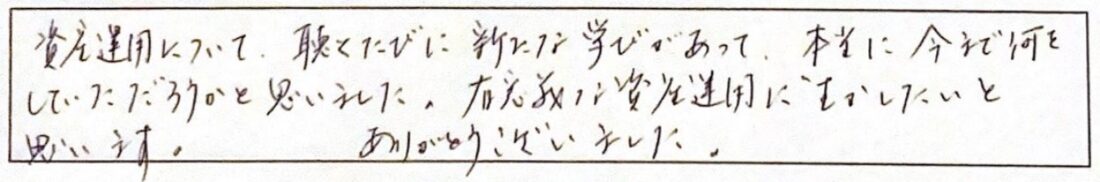 資産運用について、聴くたびに新たな学びがあって、本当に今まで何を
していただろうかと思いました。有意義な資産運用に生かしたいと
思います。　ありがとうございました。